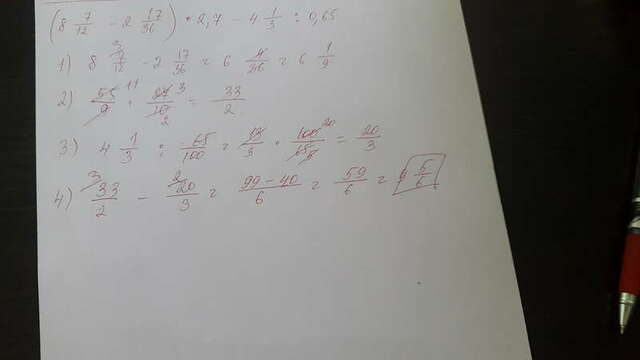 (8 7/12 - 2 17/36) • 2,7 - 4 1/3 : 0,65
1) 8 7/12 - 2 17/36 = 6 4/36 = 6 1/9
2) 55/9 • 27/10 = 33/2
3) 4 1/3 : 65/100 = 13/3 • 100/65 = 20/3
4) 33/2 - 20/3 = 99-40/6 = 59/6 = 9 5/6